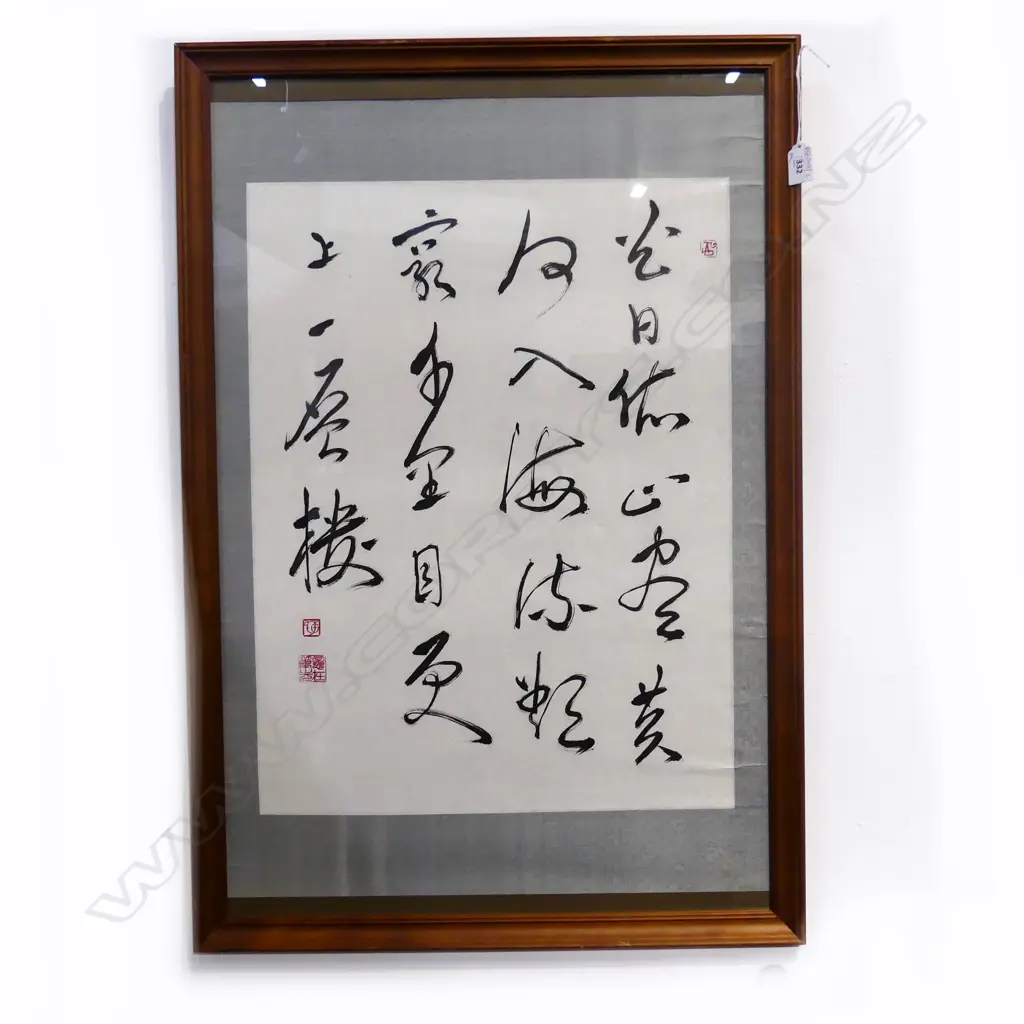 白日依山盡黃
河入海流欲
窮千里目更
上一層樓
332
WWW.CORDYS.CO.NZ